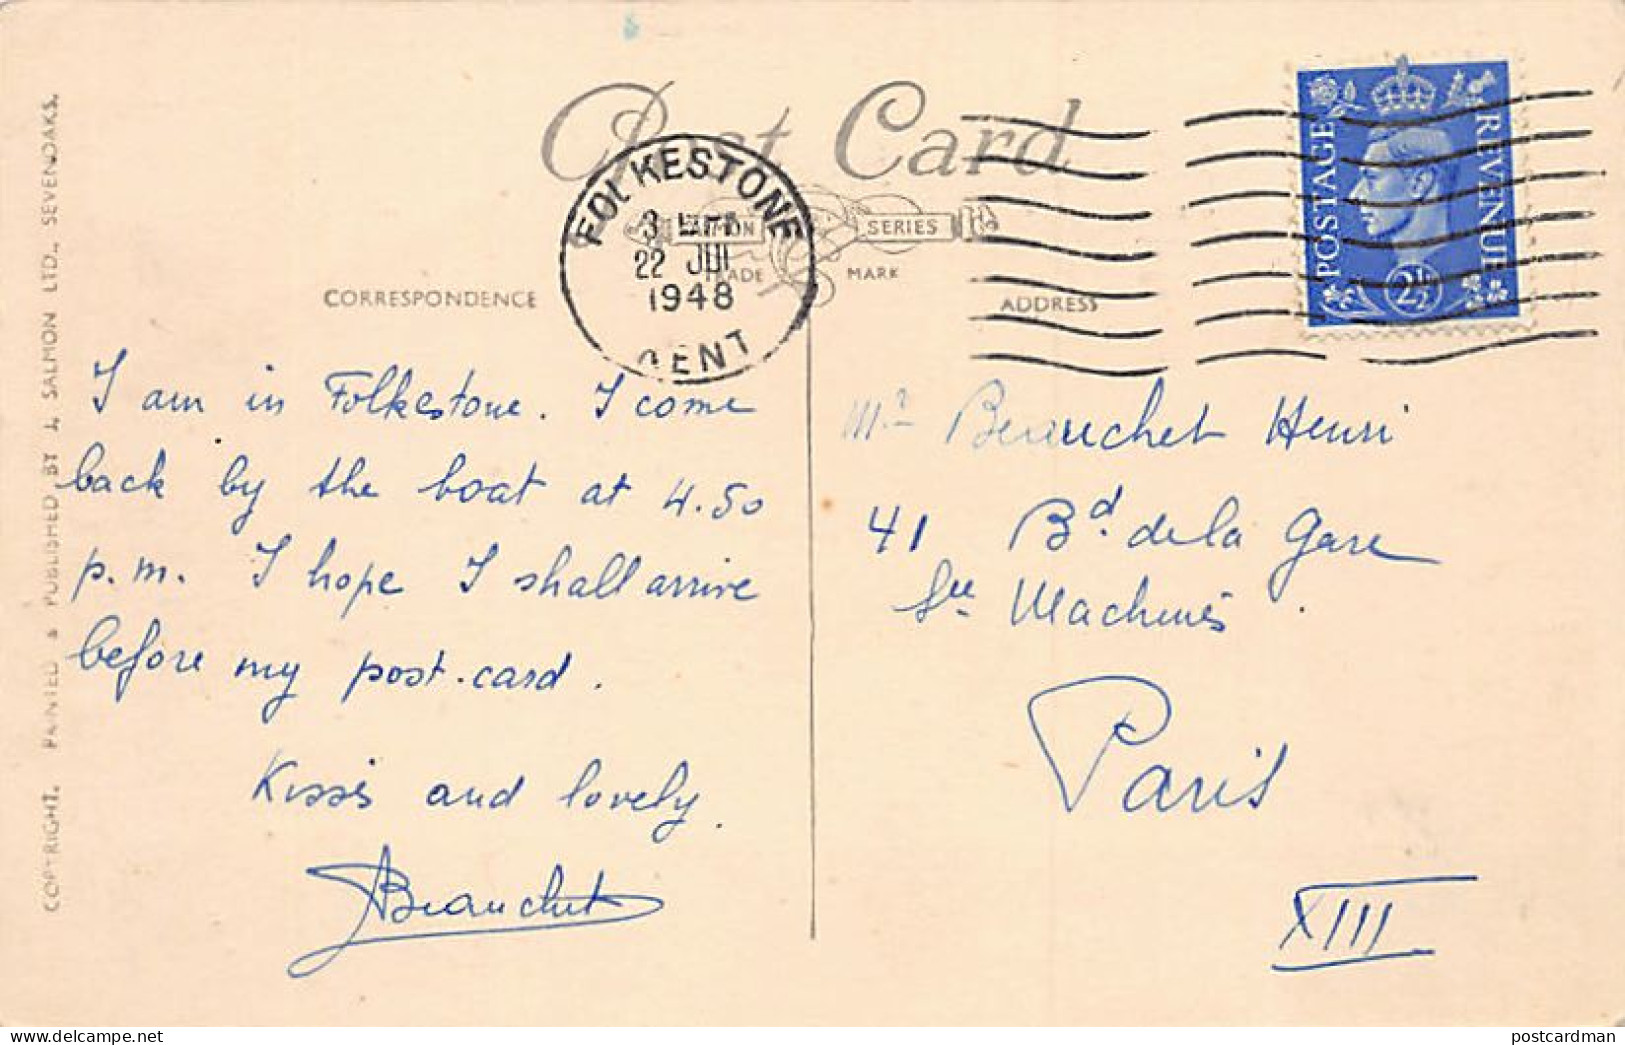 Post Card
FOLKESTONE
22 JUL
1948
KENT
SERIES
TRADE MARK
CORRESPONDENCE
ADDRESS
POSTAGE
REVENUE
2½
COPYRIGHT. PRINTED & PUBLISHED BY J. SALMON LTD., SEVENOAKS.
I am in Folkestone. I come
back by the boat at 4.50
p.m. I hope I shall arrive
before my post-card.
Kisses and lovely.
ABeauchet
Mr Beauchet Henri
41 Bd. de la Gare
Machines
Paris
XIII
postcardman